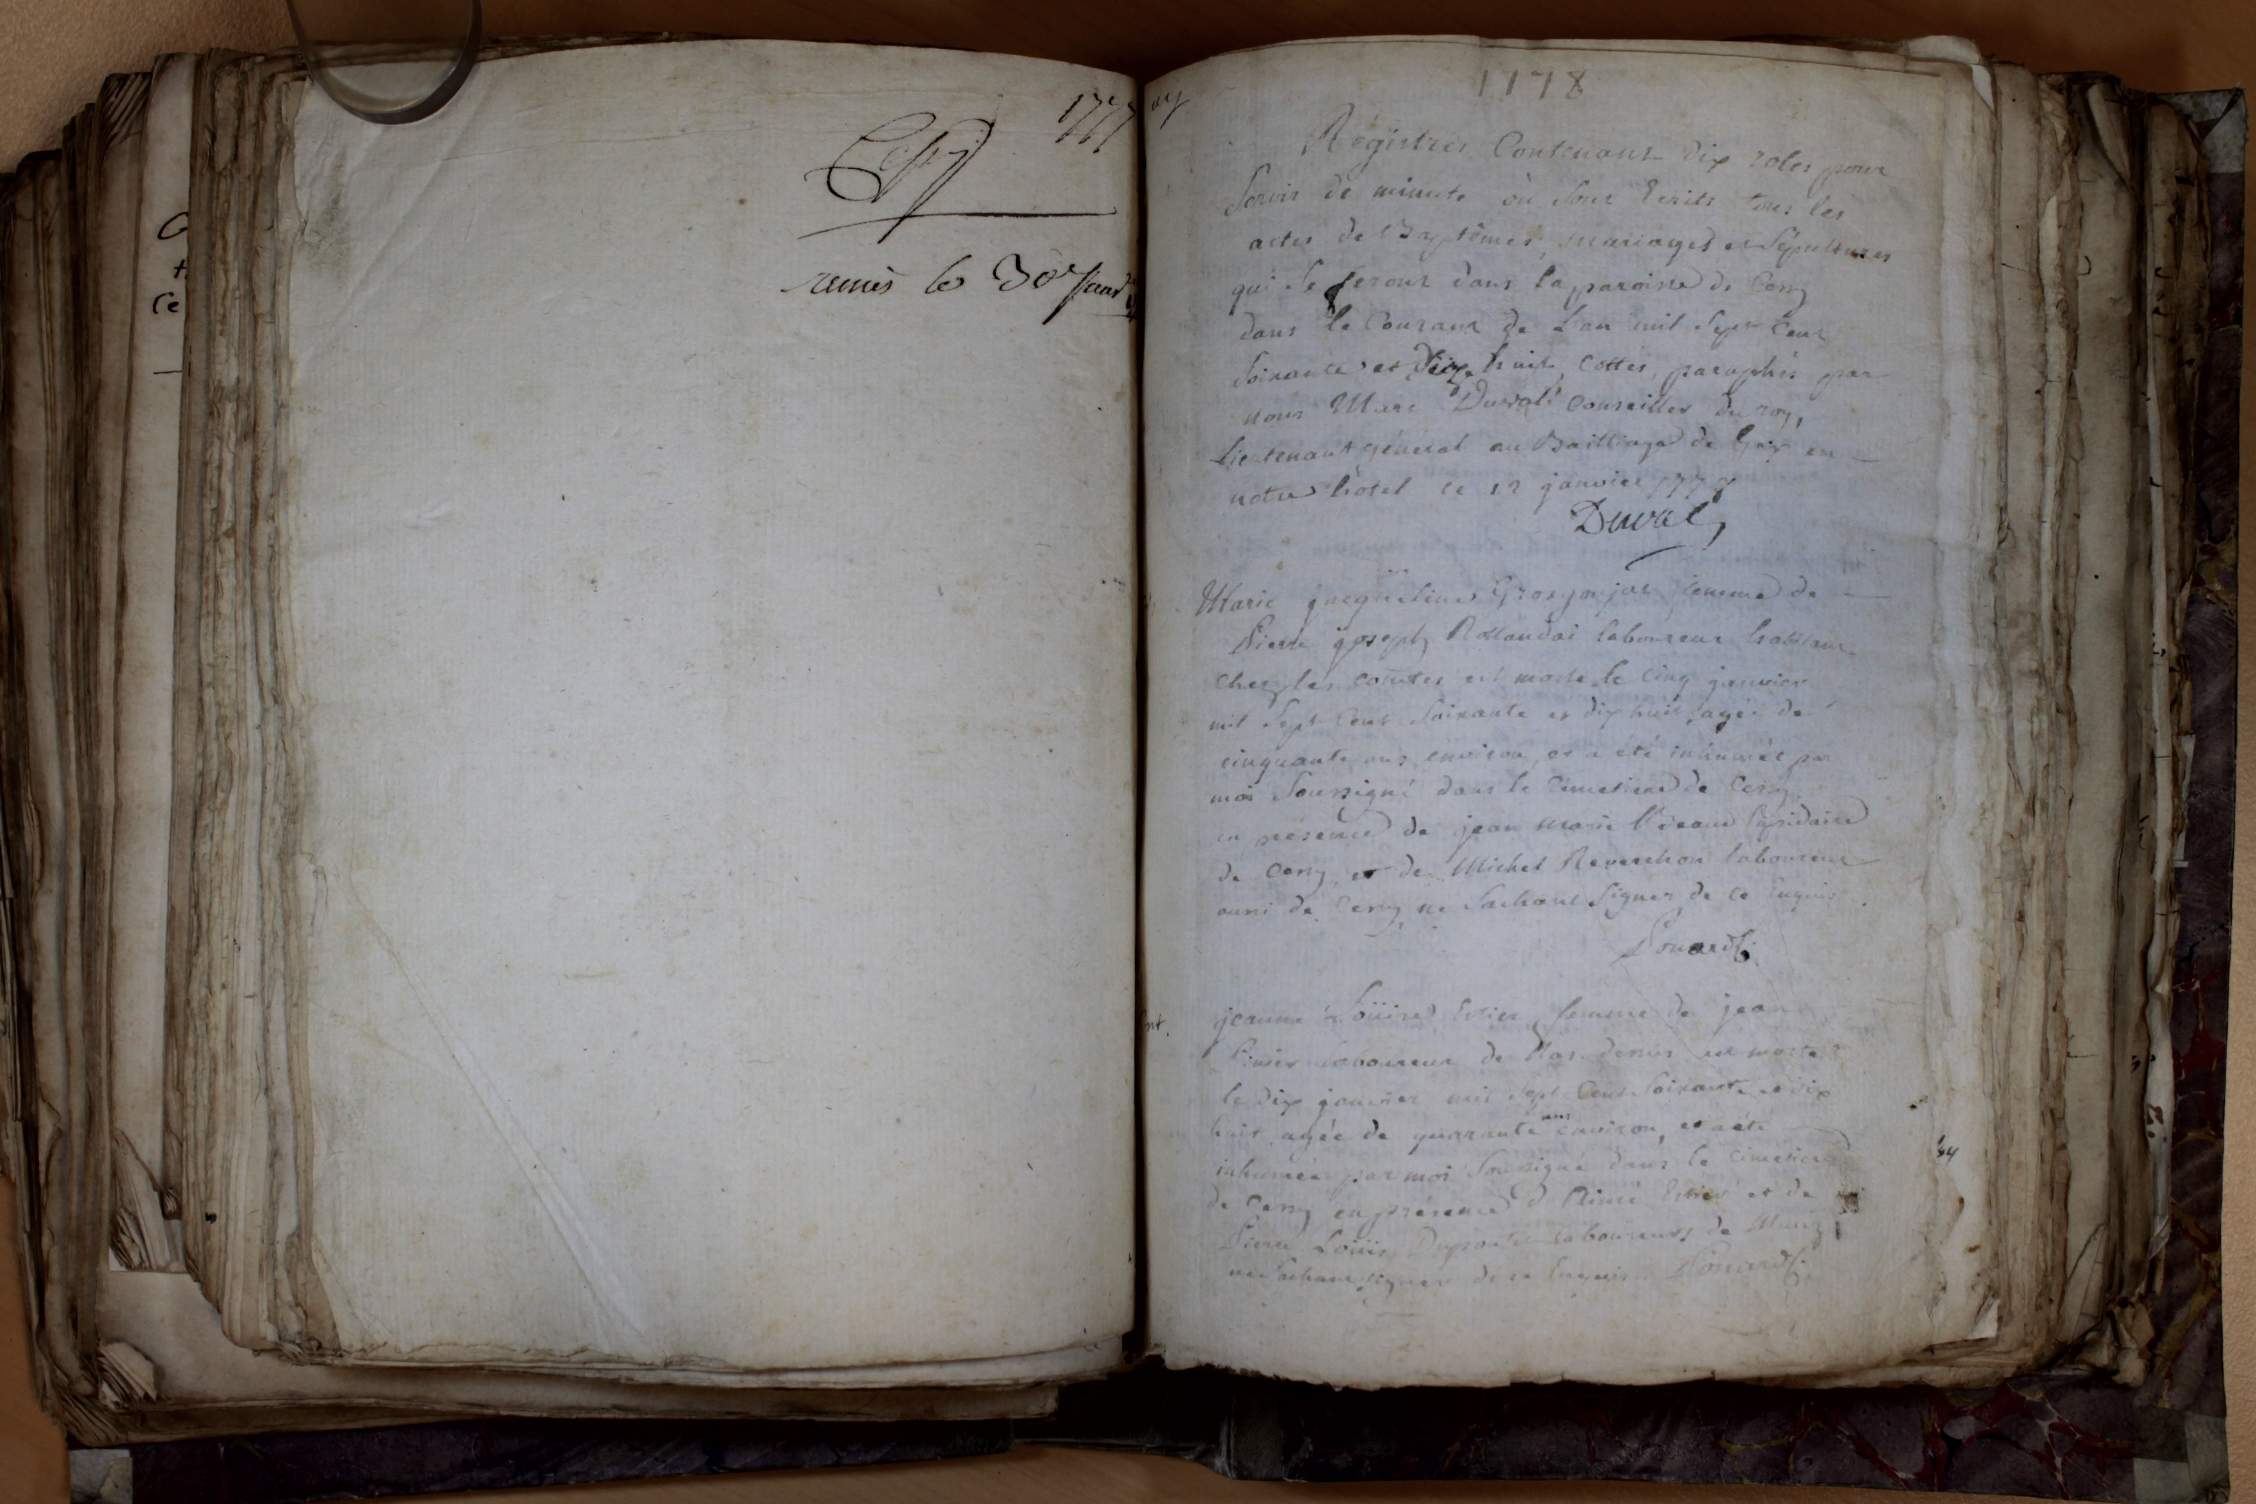 1777
Cessy
remis le 30e Janv
1778
Regîstres Contenant dix roles pour
Servir de minute où Sont Ecrits tous les
actes de Baptêmes, mariages et Sépultures
qui Se feront dans la paroisse de Cessy
dans le Courant de L'an mil Sept Cent
Soixante et Dix huit, Cottés, paraphés par
nous Marc Duval Conseiller du roy,
Lieutenant général au Bailliage de Gex en
notre hôtel ce 12 janvier 1778
Duval
Marie jacqueline Grosgonjat femme de
Pierre joseph Rollandoi laboureur habitant
Chez les comtes est morte le Cinq janvier
mil Sept Cent Soixante et dix huit, agée de
cinquante ans environ, et a été inhumée par
moi Soussigné dans le Cimetiere de Cessy
en présence de jean marie lapidaire
de Cessy et de Michel Reverchon laboureur
aussi de Cessy ne Sachant Signer de ce Enquis
jeanne Loüise femme de jean
laboureur de est morte
le dix janvier mil Sept Cent Soixante et dix
huit, agée de quarante ans environ, et a été
inhumée par moi Soussigné dans le Cimetiere
de Cessy en présence d'Aimé et de
Pierre Loüis laboureurs de
ne Sachant Signer de ce Enquis